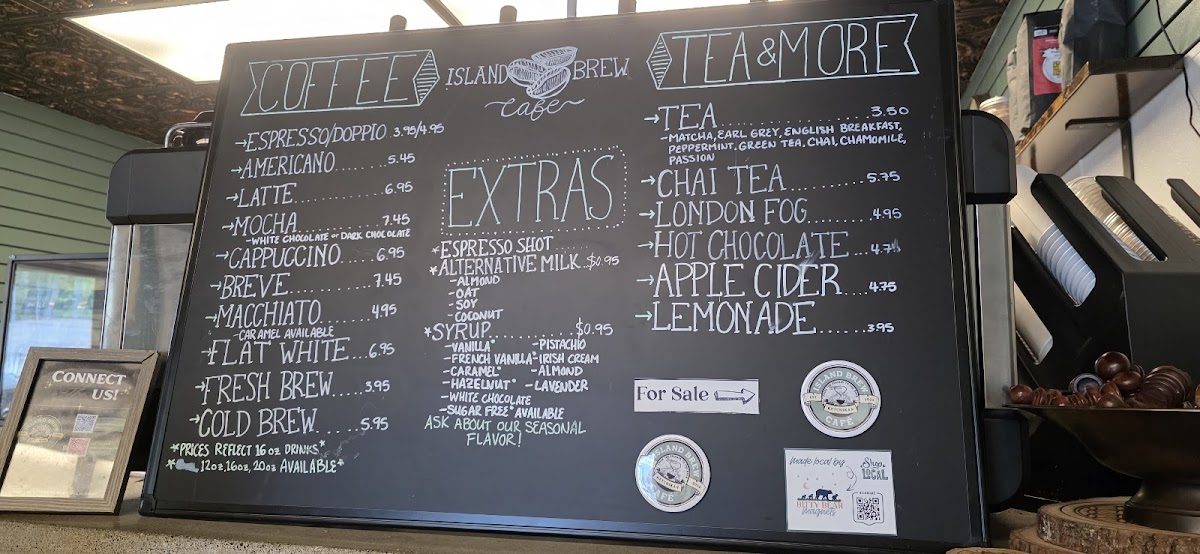 COFFEE
→ESPRESSO/DOPPIO 3.95/4.95
→AMERICANO.......5.45
→LATTE............6.95
→MOCHA............7.45
-WHITE CHOCOLATE or DARK CHOCOLATE
→CAPPUCCINO......6.95
→BREVE...........7.45
→MACCHIATO.......4.95
-CARAMEL AVAILABLE
→FLAT WHITE...6.95
→FRESH BREW.....3.95
→COLD BREW......5.95
*PRICES REFLECT 16oz DRINKS*
* 12oz, 16oz, 20oz AVAILABLE*
ISLAND BREW
cafe
EXTRAS
*ESPRESSO SHOT
*ALTERNATIVE MILK..$0.95
-ALMOND
-OAT
-SOY
-COCONUT
*SYRUP............$0.95
-VANILLA* -PISTACHIO
-FRENCH VANILLA* -IRISH CREAM
-CARAMEL* -ALMOND
-HAZELNUT* -LAVENDER
-WHITE CHOCOLATE
-SUGAR FREE* AVAILABLE
ASK ABOUT OUR SEASONAL
FLAVOR!
TEA & MORE
→TEA.....................3.50
-MATCHA, EARL GREY, ENGLISH BREAKFAST,
PEPPERMINT, GREEN TEA, CHAI, CHAMOMILE,
PASSION
→CHAI TEA..........5.75
→LONDON FOG........4.95
→HOT CHOCOLATE....4.7
→APPLE CIDER....4.75
→LEMONADE.......3.95
For Sale
ISLAND BREW
CAFÉ
ISLAND BREW
CAFÉ
Made local by
Shop
LOCAL
BITTY BEAR
magnets
CONNECT
US!